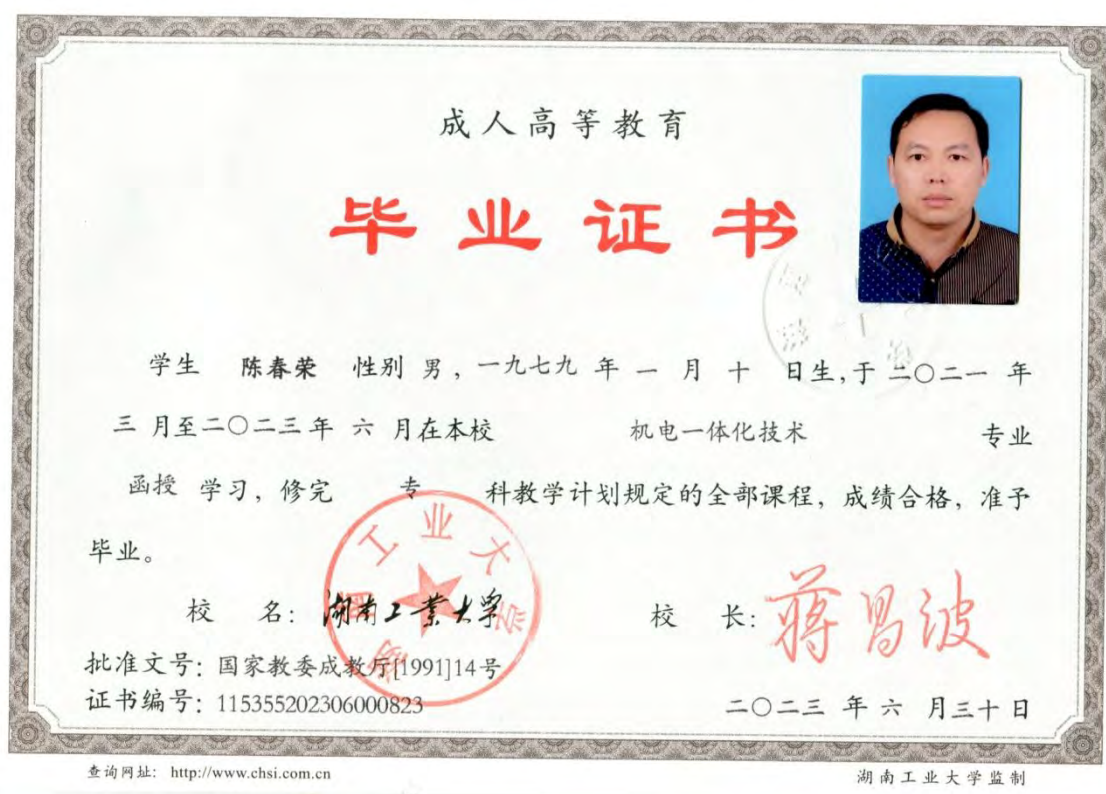 成人高等教育
毕业证书
学生 陈春荣 性别 男，一九七九 年 一 月 十 日生，于 二〇二一 年
三 月至二〇二三年 六 月在本校 机电一体化技术 专业
函授 学习，修完 专 科教学计划规定的全部课程，成绩合格，准予
毕业。
湖南工业大学
校 名：湖南工業大學
校 长：蒋昌波
批准文号：国家教委成教厅[1991]14号
证书编号：115355202306000823
二〇二三 年 六 月三十日
查询网址：http://www.chsi.com.cn
湖南工业大学监制